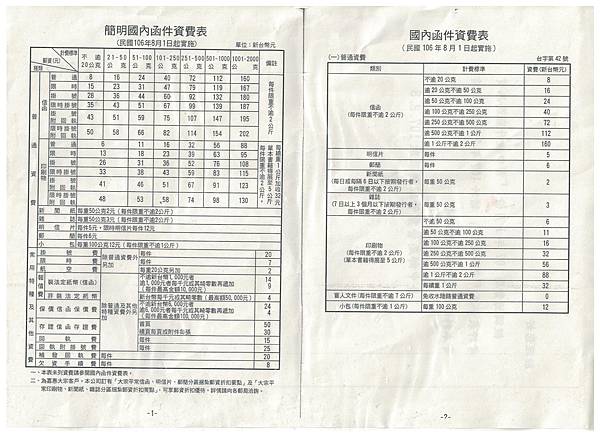 簡明國內函件資費表
(民國106年8月1日起實施)
單位：新台幣元
計費標準
郵資(元)
種類
不逾20公克 21-50公克 51-100公克 101-250公克 251-500公克 501-1000公克 1001-2000公克 備註
普通資費
信函
普通 8 16 24 40 72 112 160
限時 15 23 31 47 79 119 167
掛號 28 36 44 60 92 132 180
限時掛號 35 43 51 67 99 139 187
掛號附回執 43 51 59 75 107 147 195
限時掛號附回執 50 58 66 82 114 154 202
每件限重不逾2公斤
印刷物
普通 6 11 16 32 56 88
限時 13 18 23 39 63 95
掛號 26 31 36 52 76 108
限時掛號 33 38 43 59 83 115
掛號附回執 41 46 51 67 91 123
限時掛號附回執 48 53 58 74 98 130
每續重1公斤加收32元
單本書籍限展至5公斤
每件限重不逾2公斤,
新聞紙 每重50公克2元(每件限重不逾2公斤)
雜誌 每重50公克3元(每件限重不逾2公斤)
明信片 每件5元，限時明信片每件12元
郵簡 每件6元
小包 每重100公克12元(每件限重不逾1公斤)
常用特種及其他資費
掛號費 除普通資費外另加 每件 20
限時費 每件 7
航空費 每重20公克另加 2
報值費
裝法定紙幣(信函) 不逾新台幣1,000元者 14
逾1,000元者每千元或其畸零數再遞加 9
(每件最高金額10,000元)
非裝法定紙幣 除普通及其他特種資費外另加 新台幣每千元或其畸零數(最高額50,000元) 4
保價信函保價費 不逾新台幣6,000元者 24
逾6,000元者每千元或其畸零數再遞加 4
(每件最高金額100,000元)
存證信函存證費 首頁 50
續頁每頁或附件每張 30
回執費 每件 15
回執掛號費 每件 25
補發回執費 每件 20
欠資手續費 每件 8
一、本表未列資費請參閱國內函件資費表。
-1-
國內函件資費表
(民國106年8月1日起實施)
(一)普通資費
台字第42號
類別 計費標準 資費(新台幣元)
信函
(每件限重不逾2公斤)
不逾20公克 8
逾20公克不逾50公克 16
逾50公克不逾100公克 24
逾100公克不逾250公克 40
逾250公克不逾500公克 72
逾500公克不逾1公斤 112
逾1公斤不逾2公斤 160
明信片 每件 5
郵簡 每件 6
新聞紙
(每日或每隔6日以下按期發行者，
每件限重不逾2公斤)
每重50公克 2
雜誌
(7日以上3個月以下按期發行者，
每件限重不逾2公斤)
每重50公克 3
印刷物
(每件限重不逾2公斤)
(單本書籍得展至5公斤)
不逾50公克 6
逾50公克不逾100公克 11
逾100公克不逾250公克 16
逾250公克不逾500公克 32
逾500公克不逾1公斤 56
逾1公斤不逾2公斤 88
每續重1公斤 32
盲人文件(每件限重不逾7公斤) 免收水陸路普通資費 0
小包(每件限重不逾1公斤) 每重100公克 12
-2-